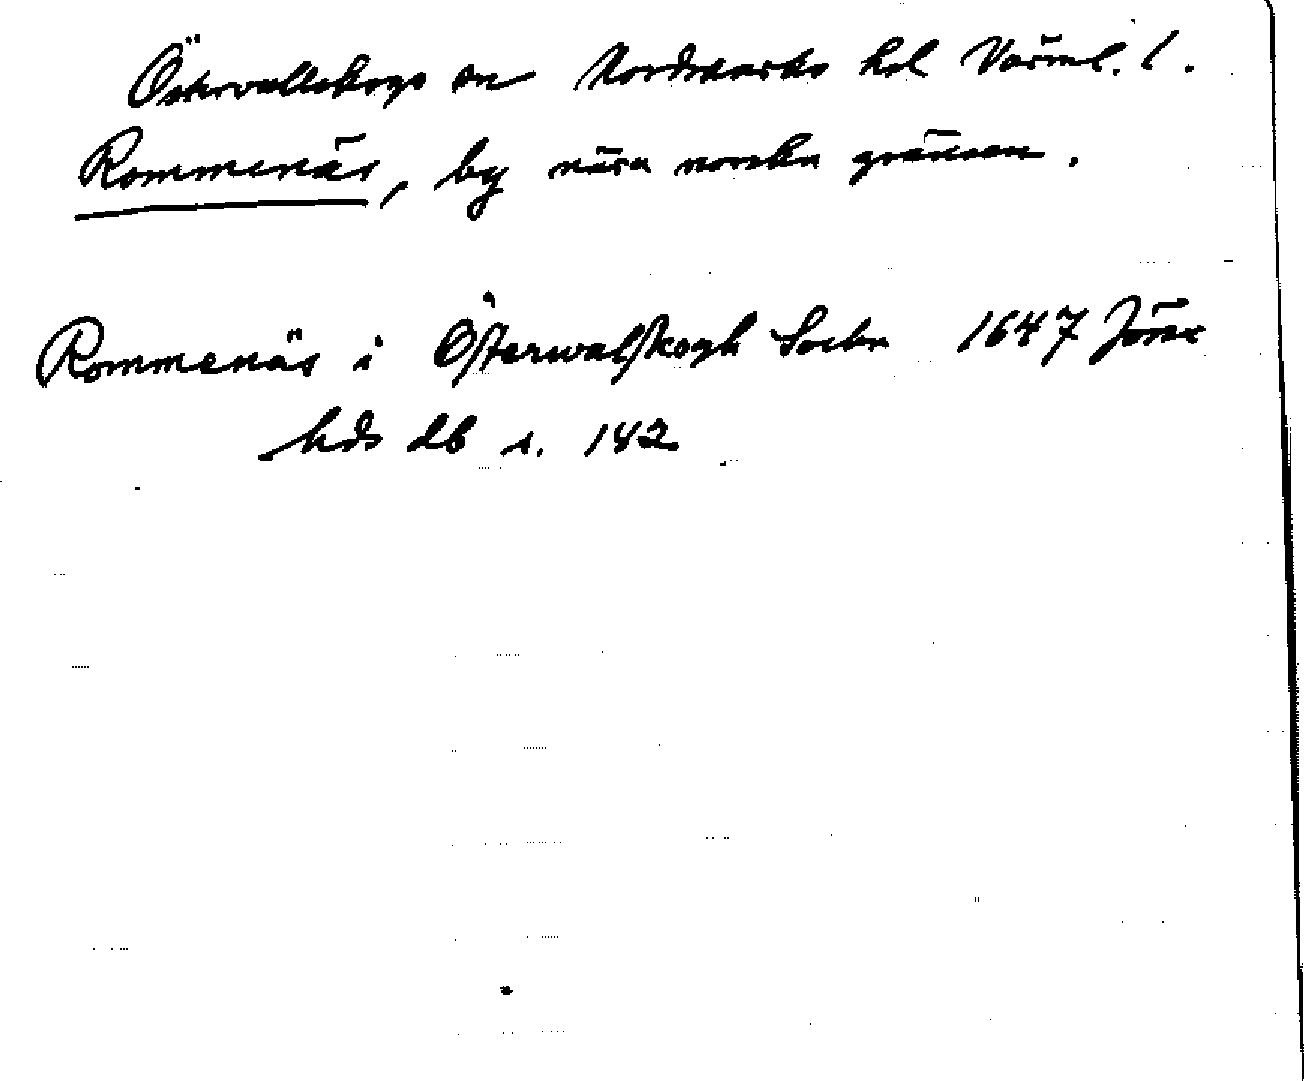 Östervallskogs sn Nordmarks hd Värml. l.
Rommenäs, by nära norska gränsen.
Rommenäs i Österwalskogh Sochn 1647 Jösse
hds db s. 142